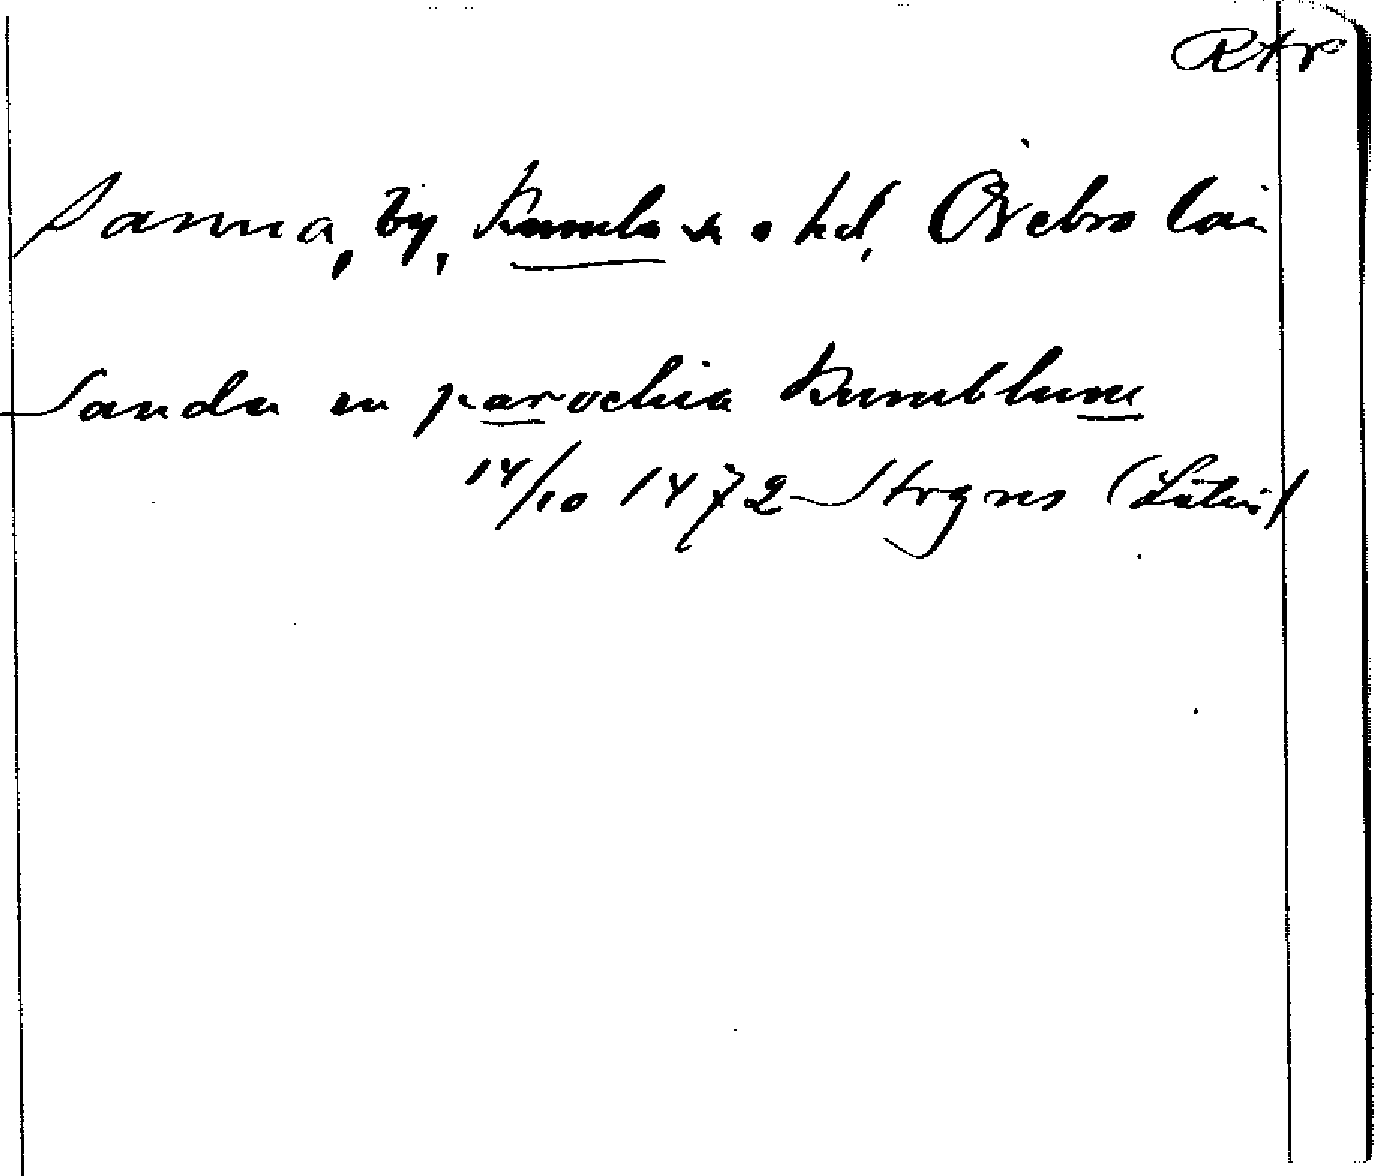 RAp
Sanna, by, Kumla sn o hd, Örebro län
Sanda in parochia Kumblum
14/10 1472 Strgnes (Latin)